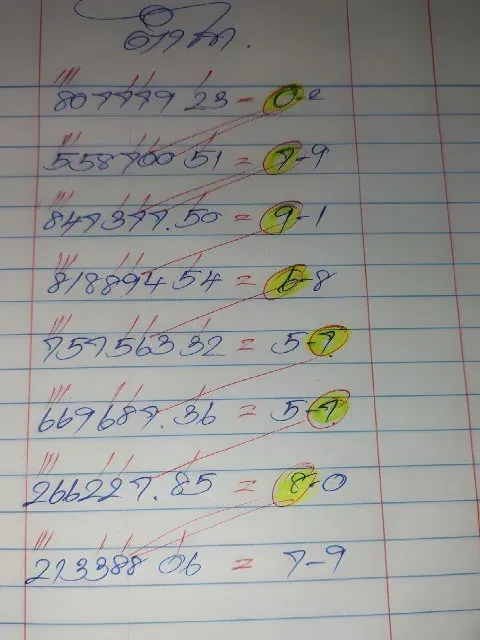 807779 23 - 0-2
558700 51 = 7-9
847377.50 = 9-1
818894 54 = 6-8
757563 32 = 5-7
669687.36 = 5-7
266227.85 = 8-0
213388 06 = 7-9